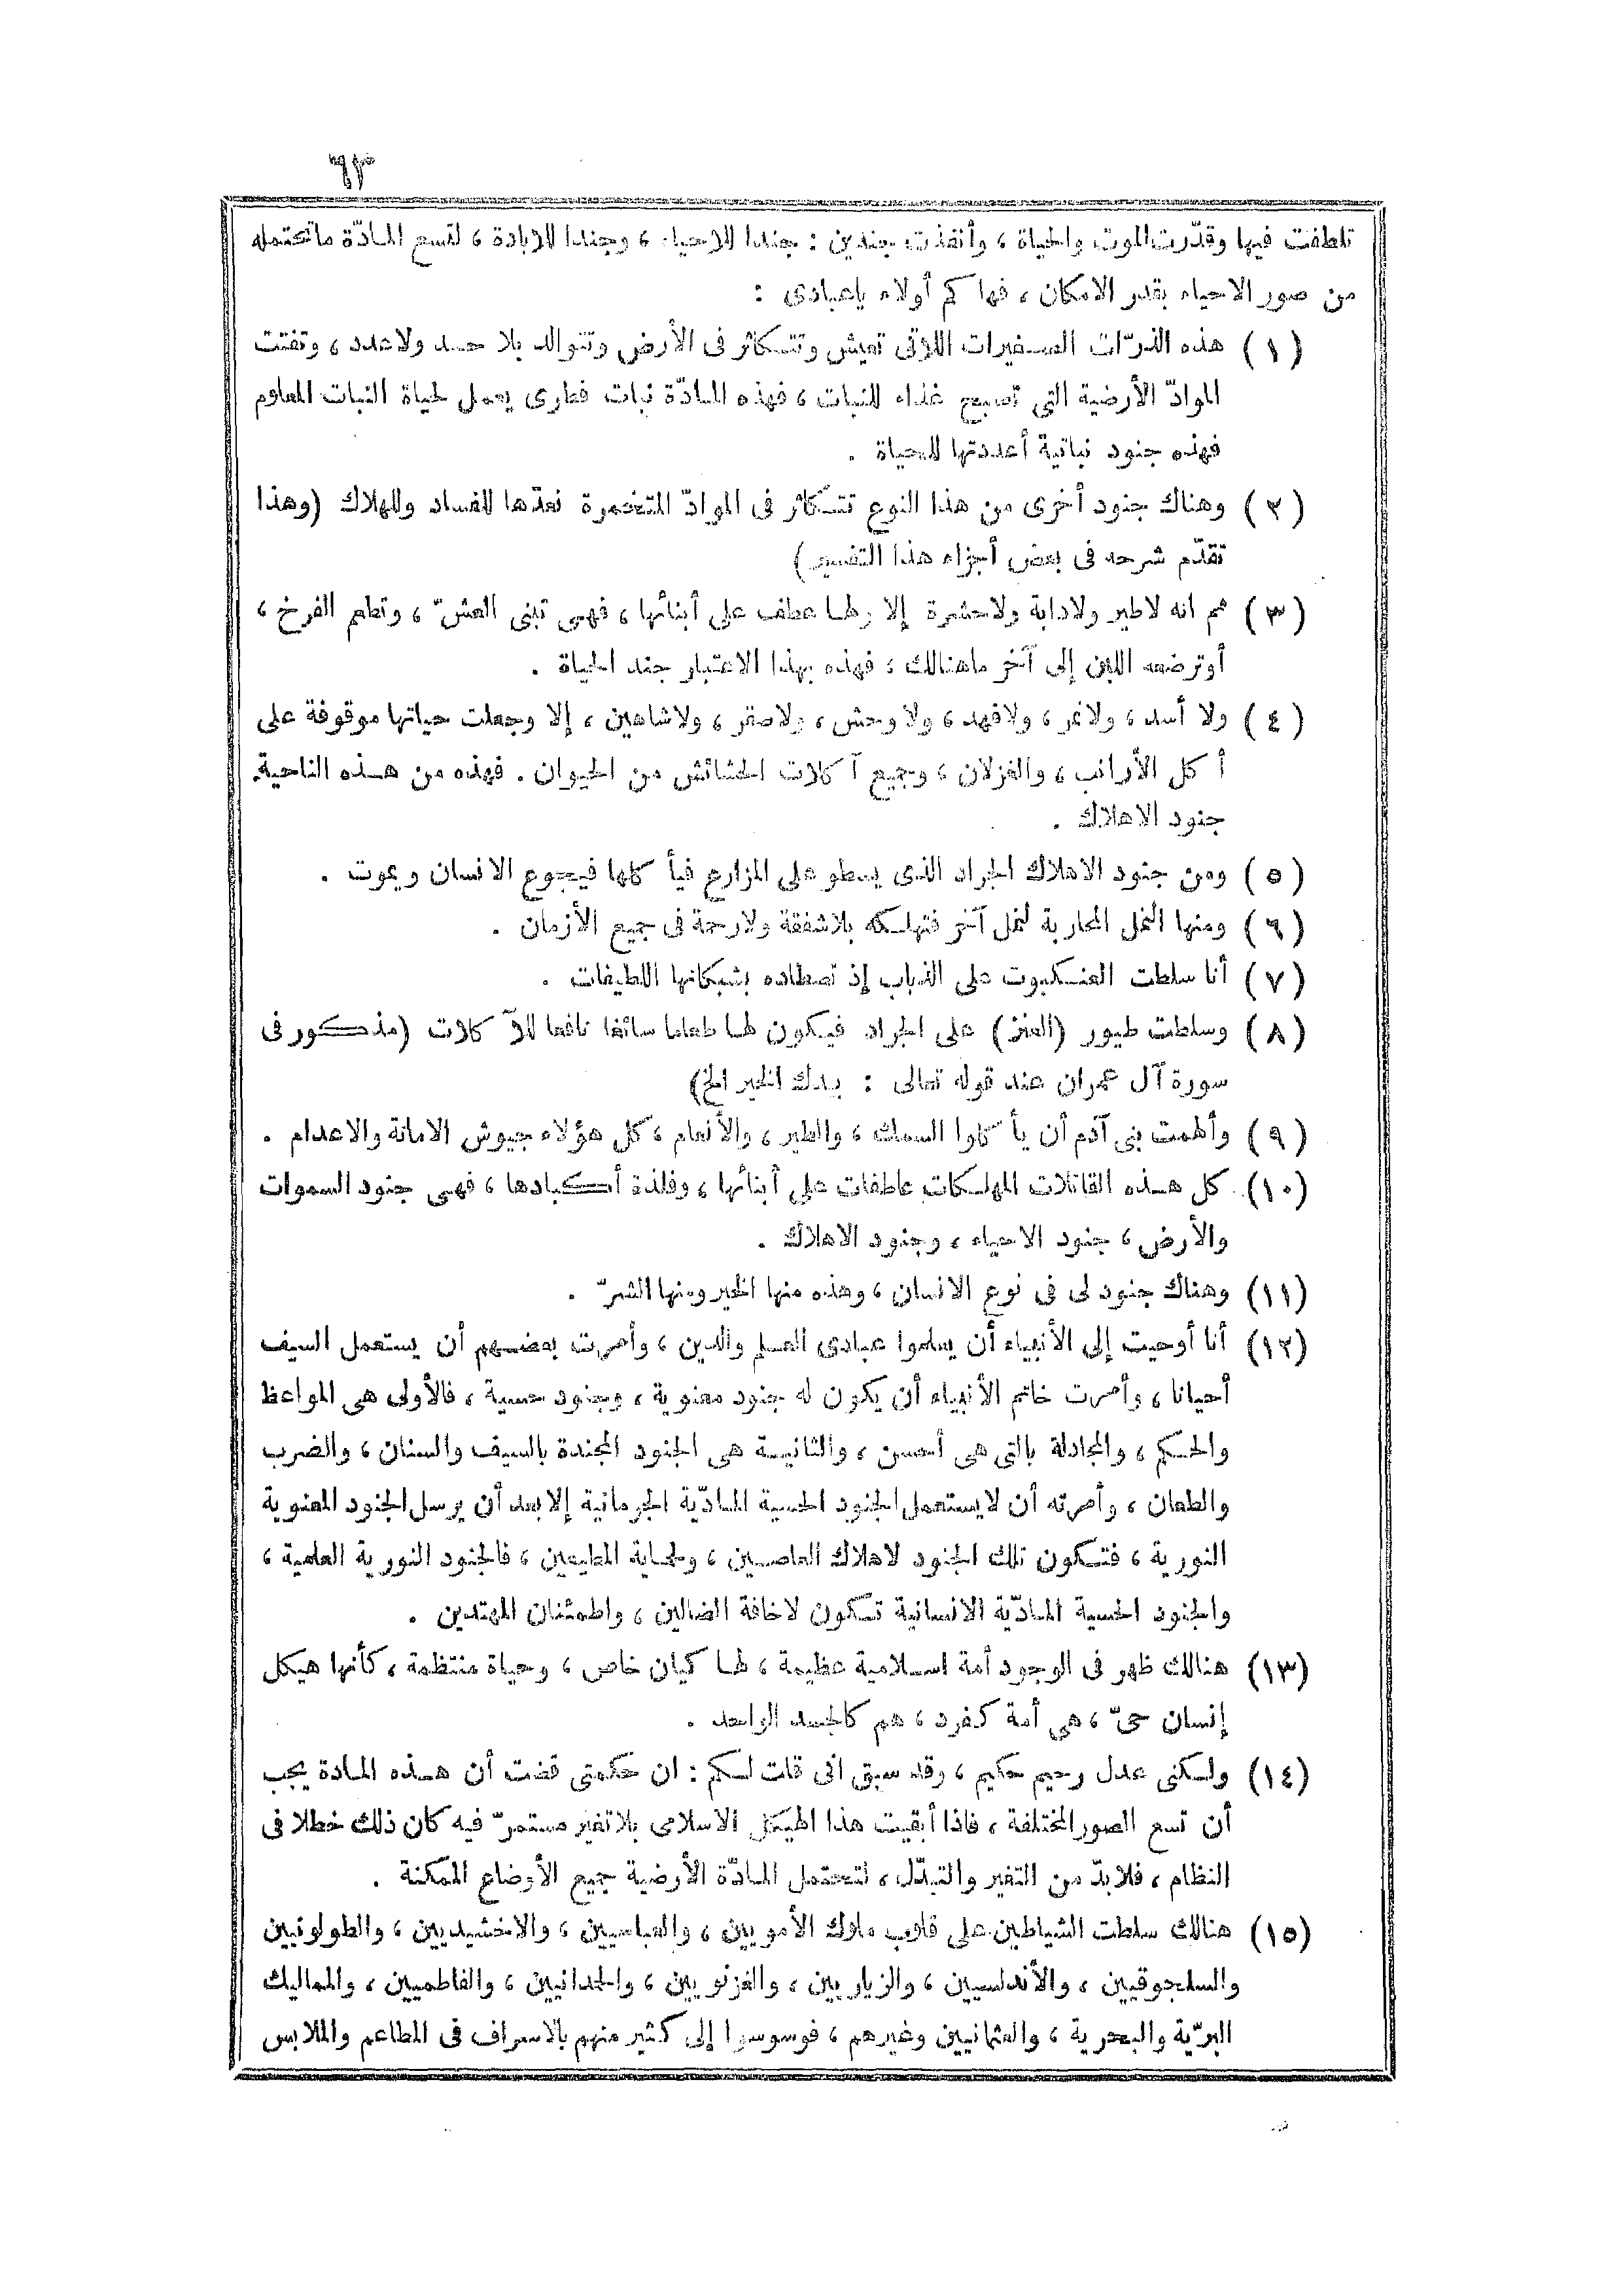 ٦٣
تلطفت فيها وقدّرت الموت والحياة ، وأنفذت جندين : جندا للاحياء ، وجندا للابادة ، لتسع المادّة ماتحتمله
من صور الاحياء بقدر الامكان ، فها كم أولاء ياعبادى :
(١) هذه الذرّات الصغيرات اللاتى تعيش وتتكاثر فى الأرض وتتوالد بلا حد ولاعدد ، وتفتت
الموادّ الأرضية التى تصبح غذاء للنبات ، فهذه المادّة نبات فطرى يعمل لحياة النبات المعلوم
فهذه جنود نباتية أعددتها للحياة .
(٢) وهناك جنود أخرى من هذا النوع تتكاثر فى الموادّ المتخمرة نعدّها للفساد وللهلاك (وهذا
تقدّم شرحه فى بعض أجزاء هذا التفسير)
(٣) ثم انه لاطير ولادابة ولاحشرة إلا ولها عطف على أبنائها ، فهى تبنى العشّ ، وتطعم الفرخ ،
أوترضعه اللبن إلى آخر ماهنالك ، فهذه بهذا الاعتبار جند الحياة .
(٤) ولا أسد ، ولانمر ، ولافهد ، ولا وحش ، ولاصقر ، ولاشاهين ، إلا وجعلت حياتها موقوفة على
أ كل الأرانب ، والغزلان ، وجميع آ كلات الحشائش من الحيوان . فهذه من هذه الناحية
جنود الاهلاك .
(٥) ومن جنود الاهلاك الجراد الذى يسطو على المزارع فيأ كلها فيجوع الانسان ويموت .
(٦) ومنها النمل المحاربة لنمل آخر فتهلكه بلاشفقة ولارحمة فى جميع الأزمان .
(٧) أنا سلطت العنكبوت على الذباب إذ تصطاده بشبكاتها اللطيفات .
(٨) وسلطت طيور (العنز) على الجراد فيكون لها طعاما سائغا نافعا للآ كلات (مذكور فى
سورة آل عمران عند قوله تعالى : بيدك الخير الخ)
(٩) وألهمت بنى آدم أن يأ كلوا السمك ، والطير ، والأنعام ، كل هؤلاء جيوش الاماتة والاعدام .
(١٠) كل هذه القاتلات المهلكات عاطفات على أبنائها ، وفلذة أكبادها ، فهى جنود السموات
والأرض ، جنود الاحياء ، وجنود الاهلاك .
(١١) وهناك جنود لى فى نوع الانسان ، وهذه منها الخير ومنها الشرّ .
(١٢) أنا أوحيت إلى الأنبياء أن يعلموا عبادى العلم والدين ، وأمرت بعضهم أن يستعمل السيف
أحيانا ، وأمرت خاتم الأنبياء أن يكون له جنود معنوية ، وجنود حسية ، فالأولى هى المواعظ
والحكم ، والمجادلة بالتى هى أحسن ، والثانية هى الجنود المجندة بالسيف والسنان ، والضرب
والطعان ، وأمرته أن لايستعمل الجنود الحسية المادّية الجرمانية إلا بعد أن يرسل الجنود المعنوية
النورية ، فتكون تلك الجنود لاهلاك العاصين ، ولحماية المطيعين ، فالجنود النورية العلمية ،
والجنود الحسية المادّية الانسانية تكون لاخافة الضالين ، واطمئنان المهتدين .
(١٣) هنالك ظهر فى الوجود أمة اسلامية عظيمة ، لها كيان خاص ، وحياة منتظمة ، كأنها هيكل
إنسان حىّ ، هى أمة كفرد ، هم كالجسد الواحد .
(١٤) ولكنى عدل رحيم حكيم ، وقد سبق انى قلت لكم : ان حكمتى قضت أن هذه المادة يجب
أن تسع الصور المختلفة ، فاذا أبقيت هذا الهيكل الاسلامى بلاتغير مستمرّ فيه كان ذلك خطلا فى
النظام ، فلابدّ من التغير والتبدّل ، لتحتمل المادّة الأرضية جميع الأوضاع الممكنة .
(١٥) هنالك سلطت الشياطين على قلوب ملوك الأمويين ، والعباسيين ، والاخشيديين ، والطولونيين
والسلجوقيين ، والأندلسيين ، والزياريين ، والغزنويين ، والحمدانيين ، والفاطميين ، والمماليك
البرّية والبحرية ، والعثمانيين وغيرهم ، فوسوسوا إلى كثير منهم بالاسراف فى المطاعم والملابس